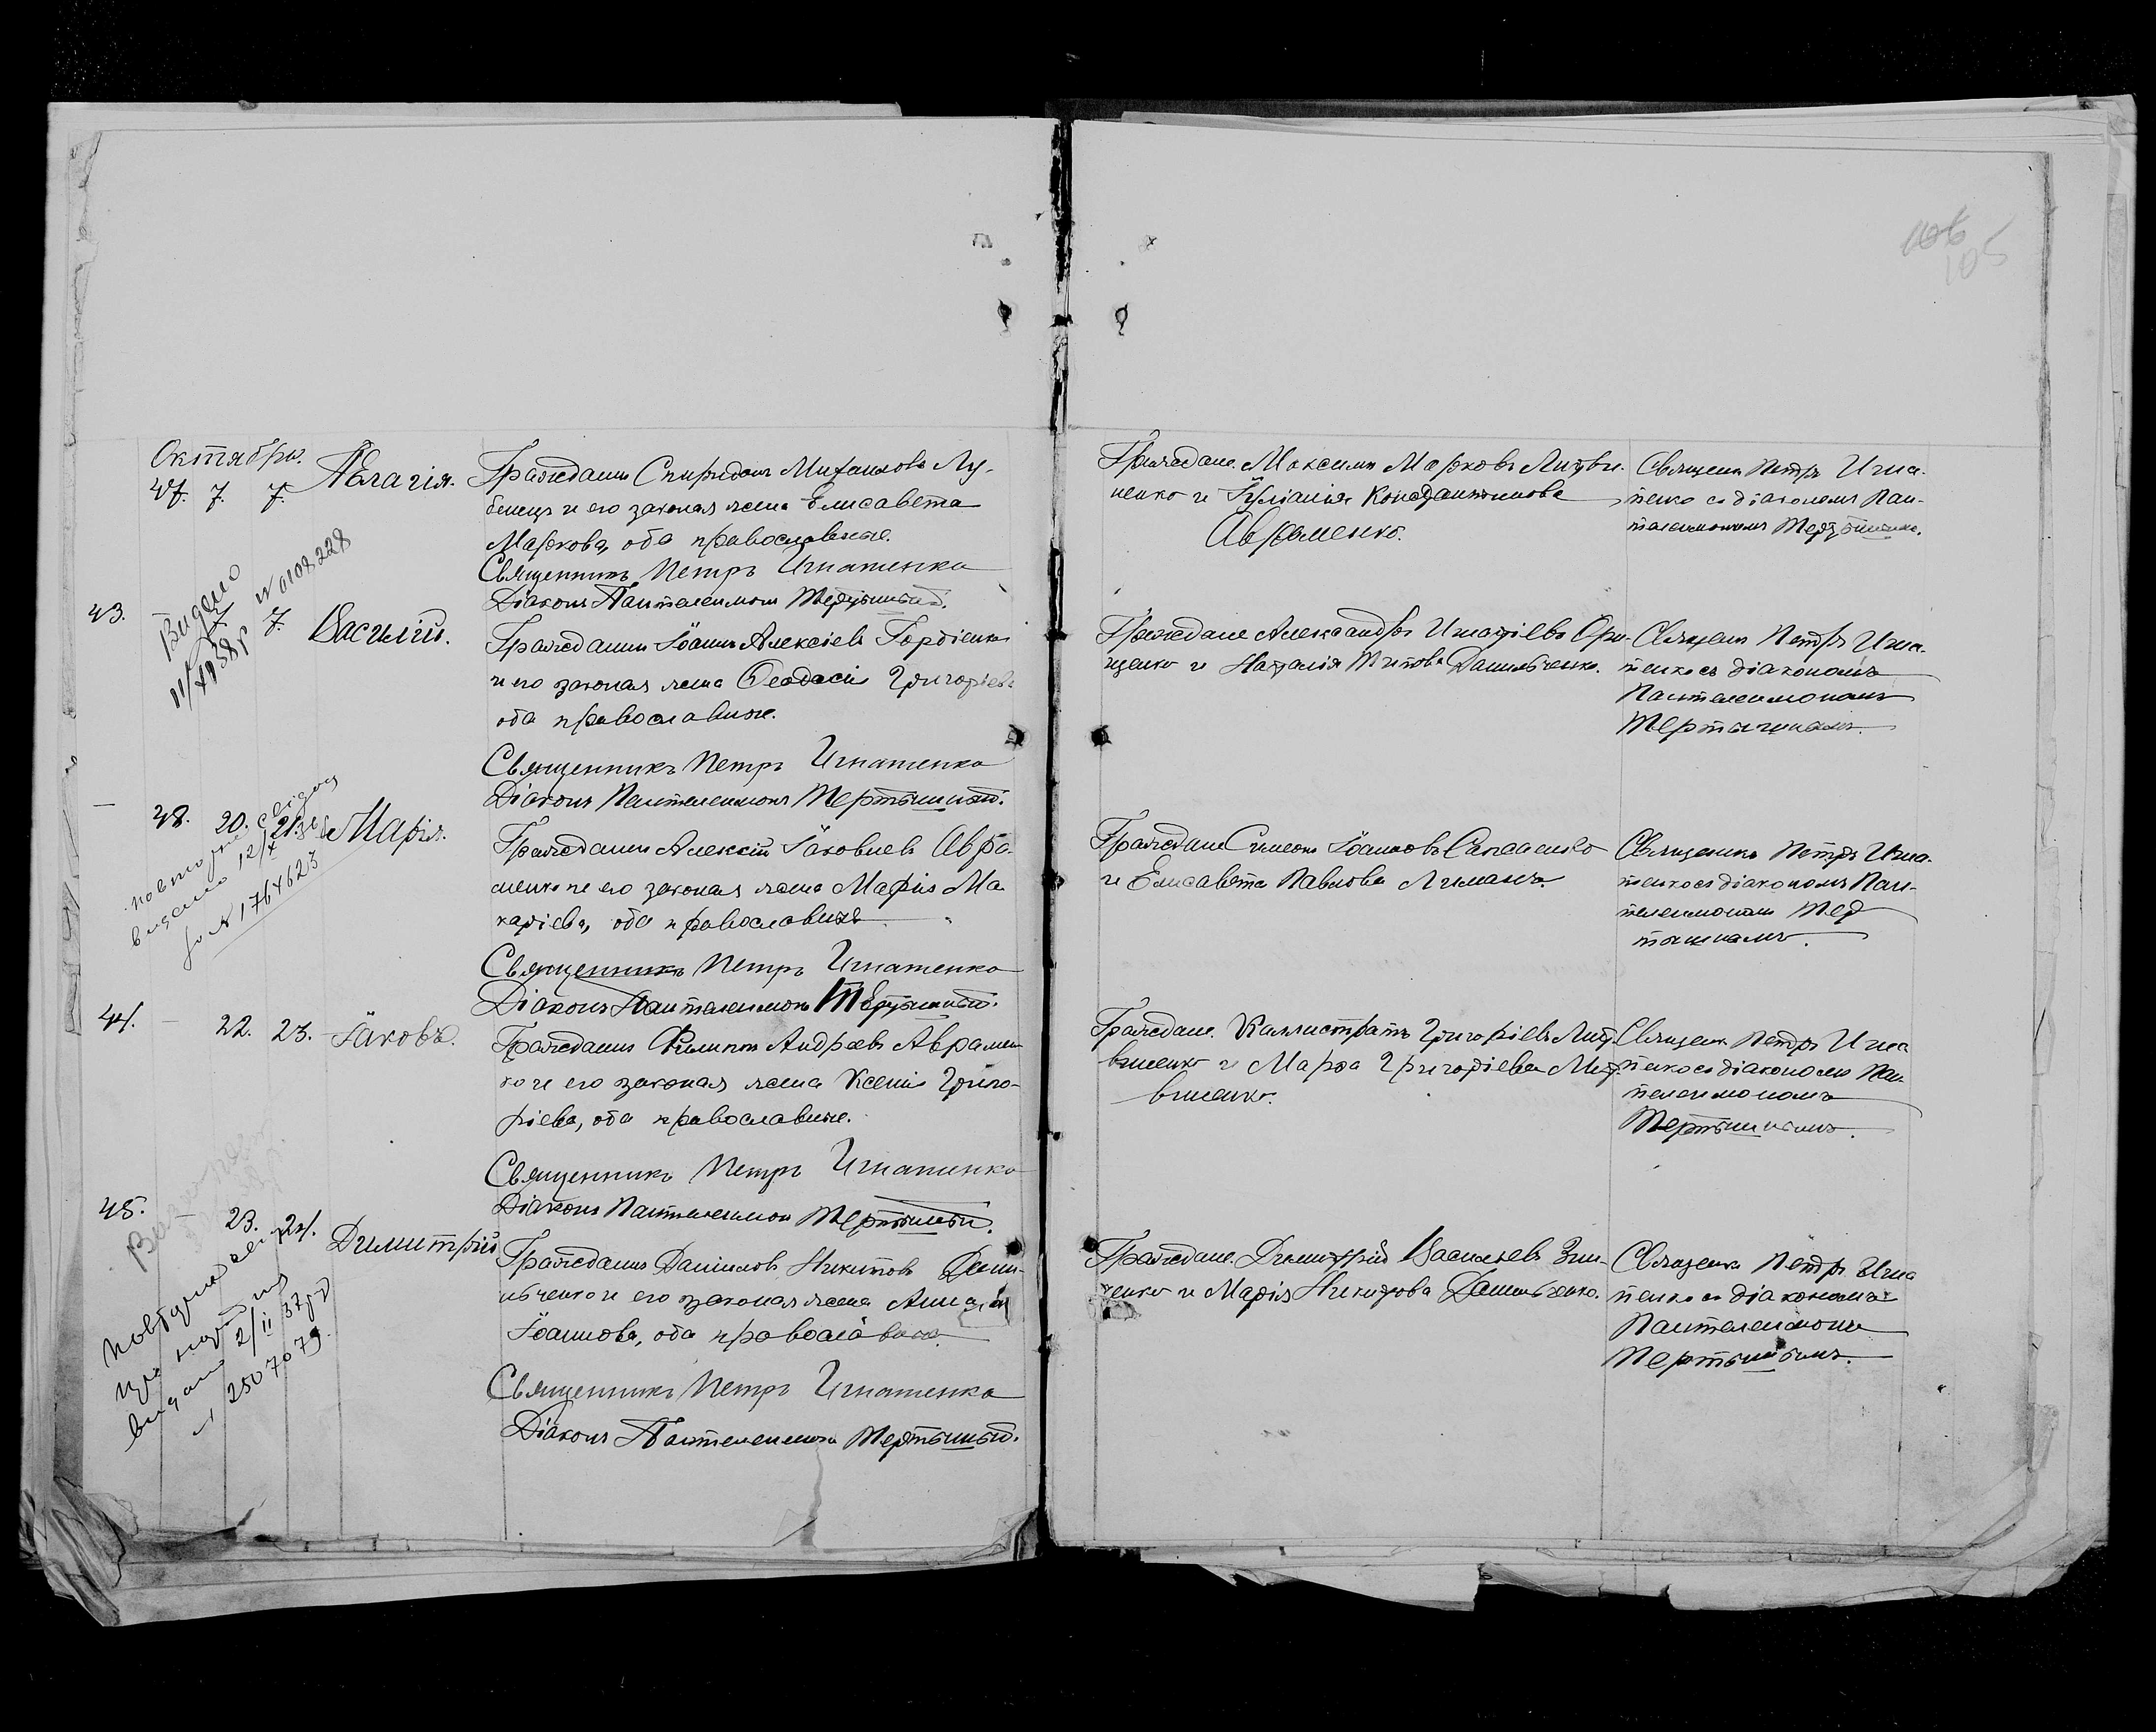 105
Октября.
47. 7. 7. Пелагія.
Гражданинъ Спиридонъ Михаиловъ Лу-
бенецъ и его законая жена Елисавета
Маркова, оба православные.
Священникъ Петръ Игнатенко
Діаконъ Пантелеимонъ Тертышный.
Граждане Максимъ Марковъ Литви-
ненко и Іуліанія Константинова
Авраменко.
Священ. Петръ Игна-
тенко съ діакономъ Пан-
телеимономъ
Видано
11/
N 0108228
43. — 7. 7. Василій.
Гражданинъ Іоаннъ Алексіевъ Гордіенко
и его законая жена Феодосія Григоріева
оба православные.
Священникъ Петръ Игнатенко
Діаконъ Пантелеимонъ Тертышный.
Граждане Александръ Игнатіевъ
и Наталія Титова Данильченко.
Священ. Петръ Игна-
тенко съ діакономъ
Пантелеимономъ
— 48. 20. 21. Марія.
повторне свідоц
видано 12/X
за N 1764623
Гражданинъ Алексій Іаковлевъ Авра-
менко и его законая жена Марія Ма-
каріева, оба православные
Священникъ Петръ Игнатенко
Діаконъ Пантелеимонъ Тертышный.
Граждане Симеонъ Іоанновъ
и Елисавета Павлова Лиманъ.
Священникъ Петръ Игна-
тенко съ діакономъ Пан-
телеимономъ Тер
44. — 22. 23. Іаковъ.
Гражданинъ Филиппъ Андреевъ Аврамен
ко и его законая жена Ксенія Григо-
ріева, оба православные.
Священникъ Петръ Игнатенко
Діаконъ Пантелеимонъ Тертышный.
Граждане Каллистратъ Григоріевъ Лит-
виненко и Марфа Григоріева Лит-
виненко.
Священ. Петръ Игна
тенко съ діакономъ Пан-
телеимономъ
45. — 23. 24. Димитрій
Повторне
видано 2/II 37р
N 2507079.
Гражданинъ Даніиловъ Никитовъ Дани-
льченко и его законая жена Анна
Іоаннова, оба православные.
Священникъ Петръ Игнатенко
Діаконъ Пантелеимонъ Тертышный.
Граждане Димитрій Васильевъ Зин-
ченко и Марія Никитова Данильченко.
Священ. Петръ Игна
тенко съ діакономъ
Пантелеимономъ